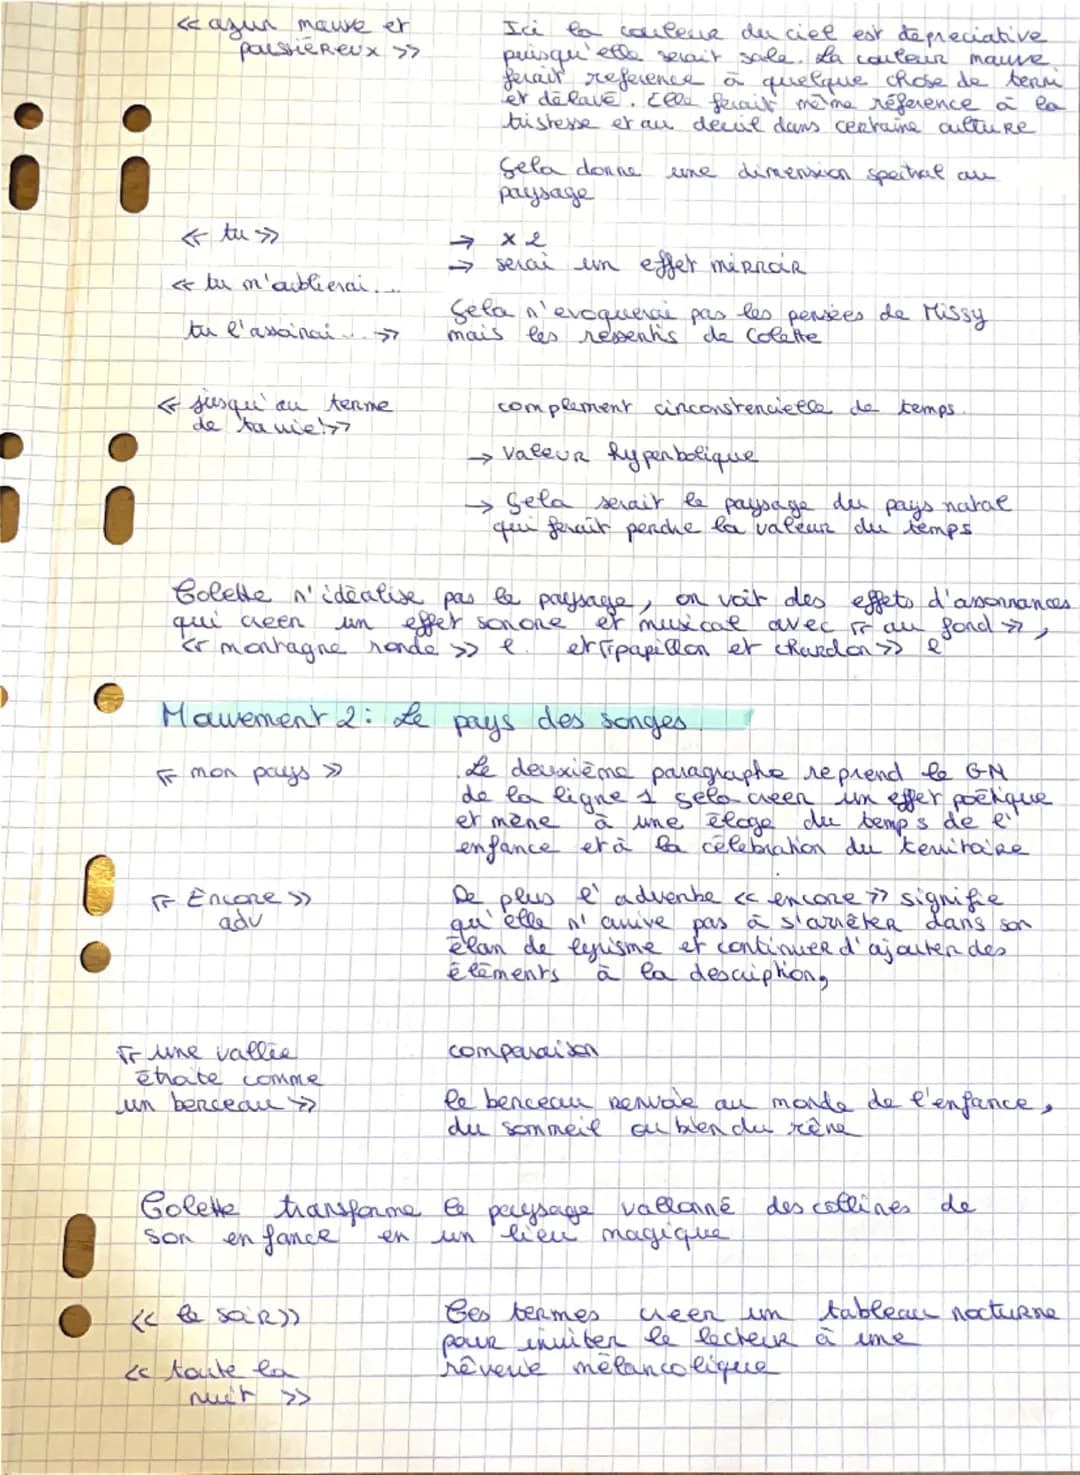 << azur mauve et
poussiéreux >>
Ici la couleur du ciel est dépreciative
puisqu'elle serait sale. La couleur mauve
ferait reference à quelque chose de terni
et délavé. Elle ferait même référence à la
tristesse et au deuil dans certaine culture
Cela donne une dimension spectral au
paysage
<< tu >>
→ x 2
→ serai un effet mirroir
<< tu m'oublierai...
tu l'assoirai... >>
Cela n'evoquerai pas les pensées de Missy
mais les ressentis de Colette
<< jusqu'au terme
de ta vie! >>
complement circonstencielle de temps.
→ valeur hyperbolique
→ Cela serait le paysage du pays natal
qui ferait perdre la valeur du temps
Colette n'idéalise pas le paysage, on voit des effets d'assonnances
qui creer un effet sonore et musical avec << au fond >>,
<< montagne ronde >> e. et << papillon et chardon >> e
Mouvement 2: Le pays des songes.
<< mon pays >>
Le deuxième paragraphe reprend le GN
de la ligne 1 cela creer un effet poétique
et mène à une éloge du temps de l'
enfance et à la célébration du territoire
<< Encore >>
adv
De plus l'adverbe << encore >> signifie
qu'elle n'arrive pas à s'arrêter dans son
élan de lyrisme et continuer d'ajouter des
éléments à la description,
<< une vallée
étroite comme
un berceau >>
comparaison
le berceau renvoie au monde de l'enfance,
du sommeil ou bien du rêve
Colette transforme le paysage vallonné des collines de
son enfance en un lieu magique
<< le soir >>
<< toute la
nuit >>
Ces termes creer un tableau nocturne
pour inviter le lecteur à une
rêverie mélancolique